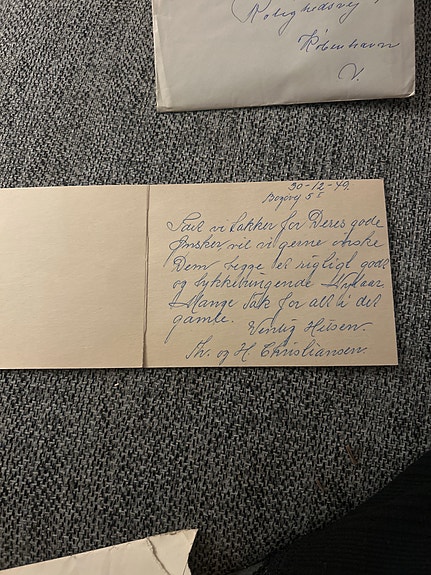 Rolighedsvej
København
V.
30-12-49.
Bogøvej 5
Idet vi takker for Deres gode
Ønsker vil vi gerne ønske
Dem begge et rigtigt godt
og lykkebringende Nytaar
Mange Tak for alt i det
gamle. Venlig Hilsen.
Th. og H. Christiansen.